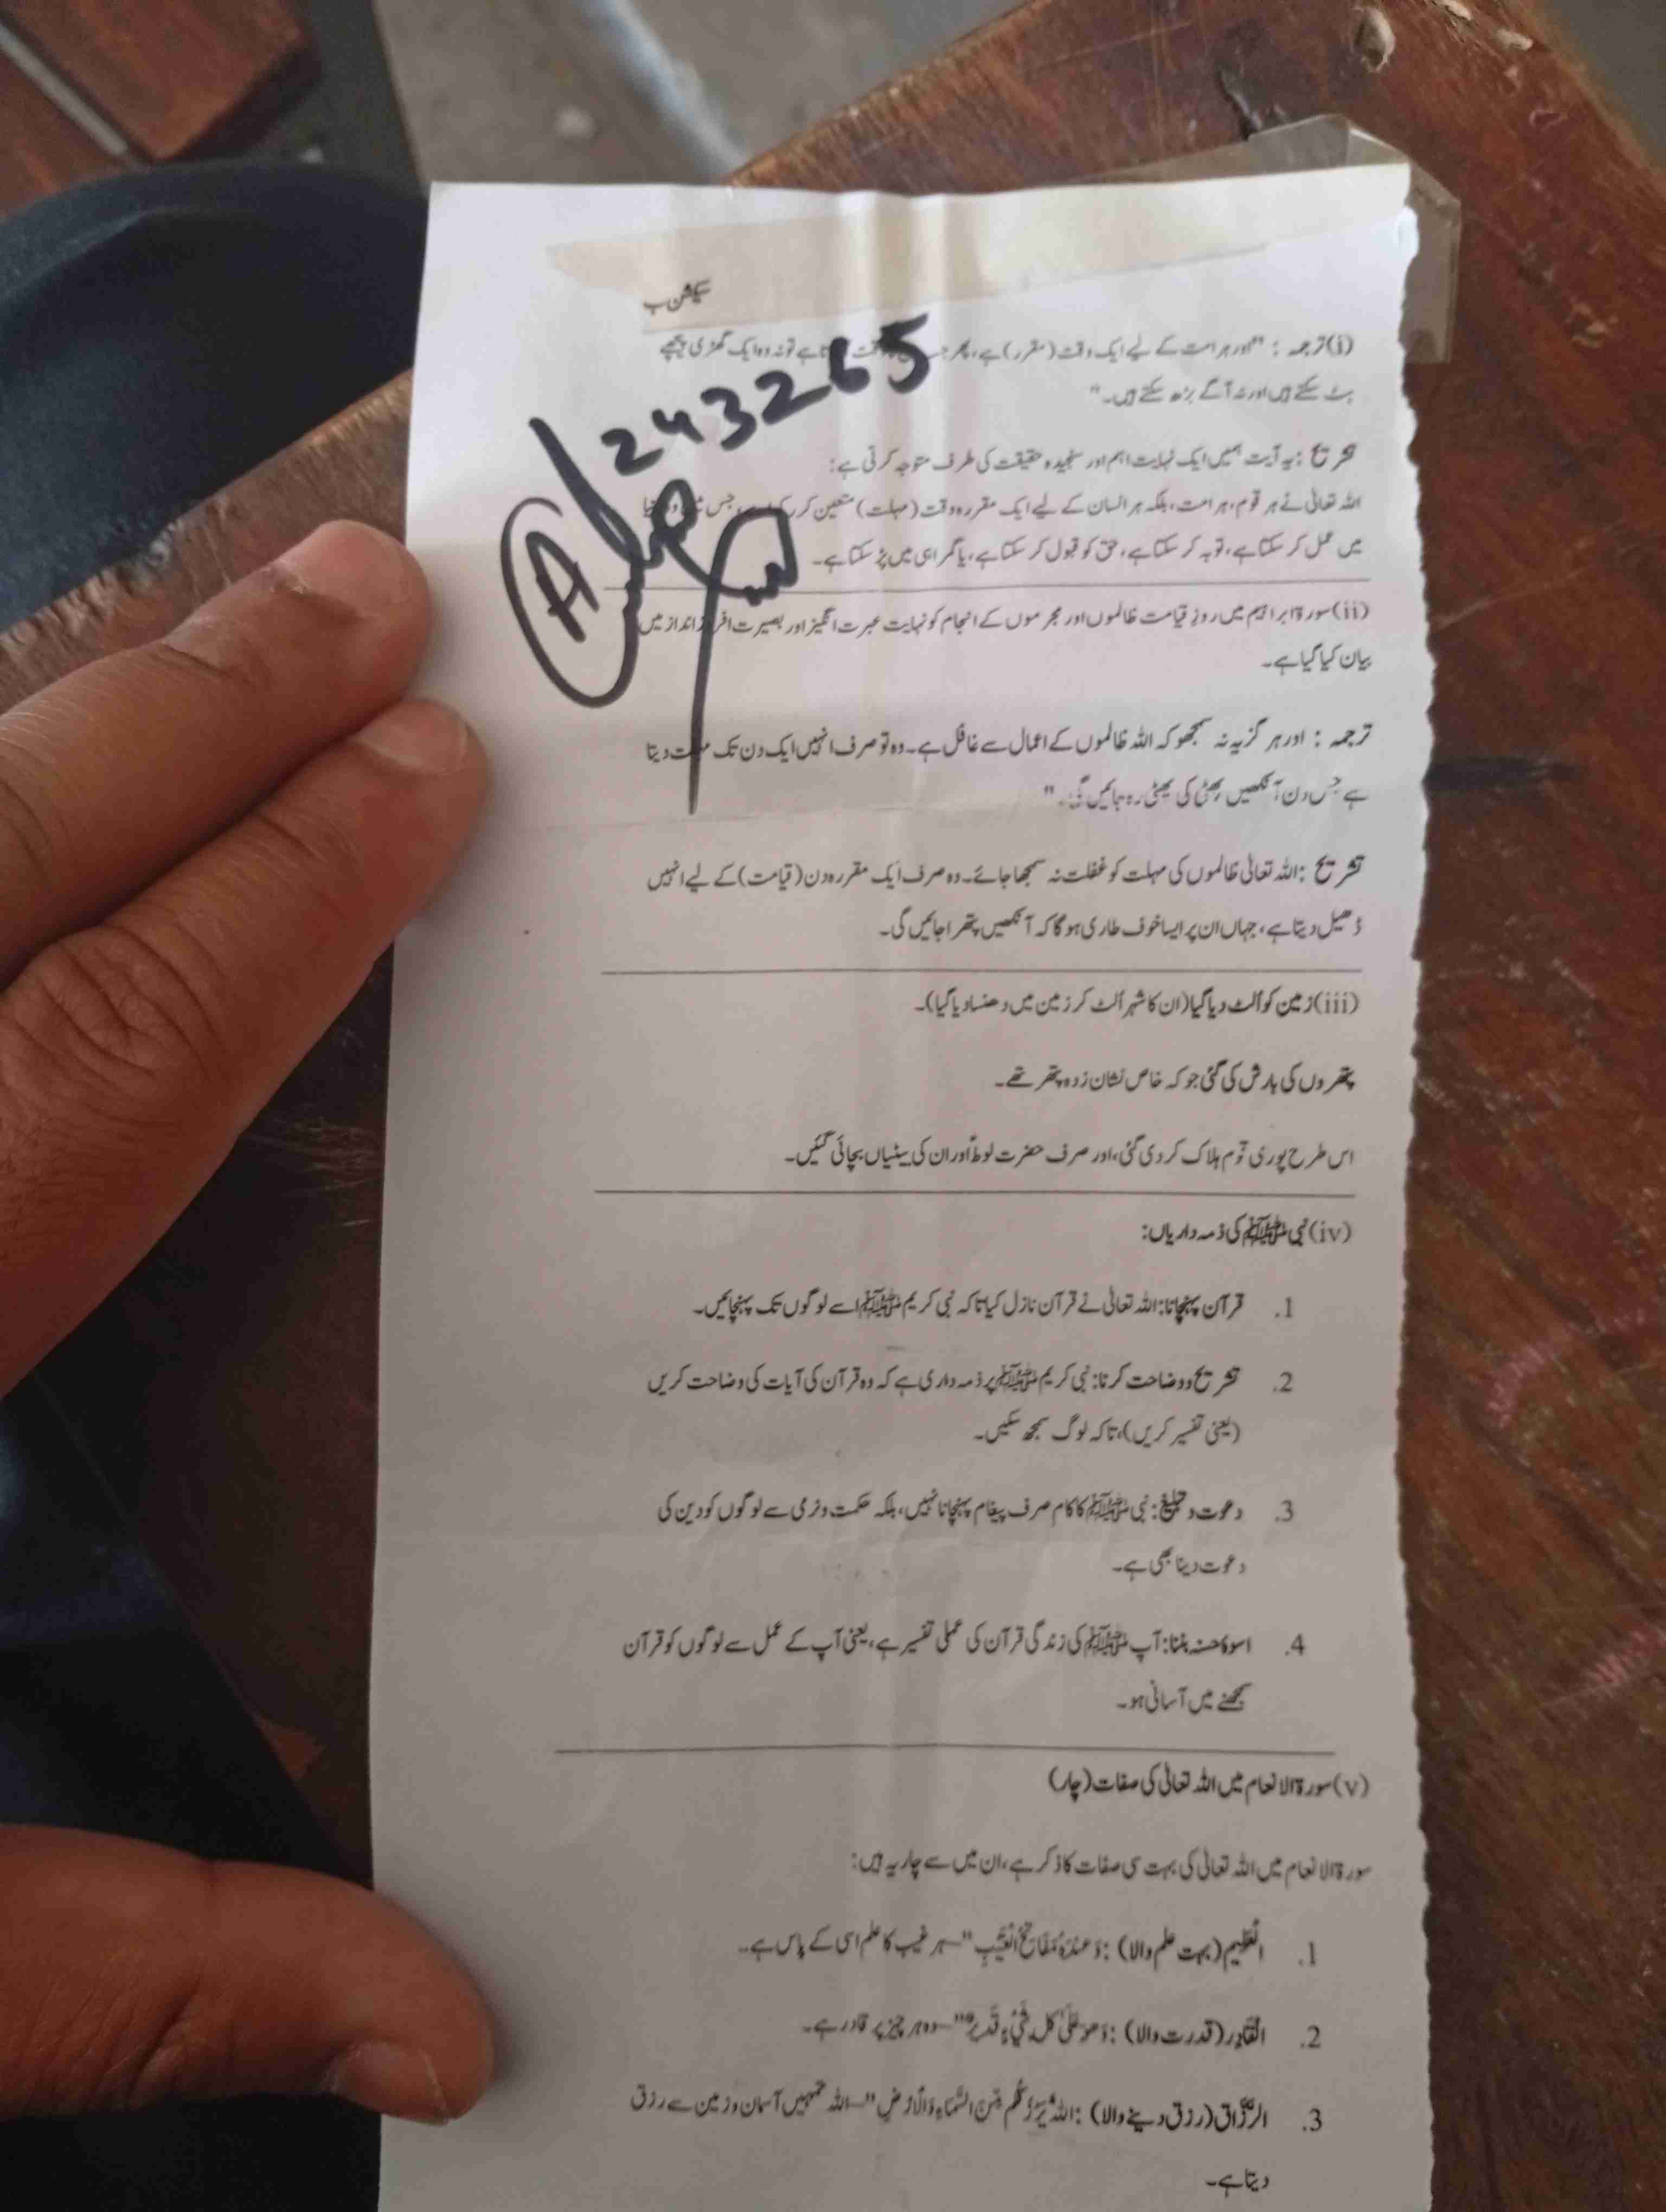 سیکشن ب
243265
A
(i) ترجمہ : "اور ہر امت کے لیے ایک وقت (مقرر) ہے، پھر وقت ہے تو نہ وہ ایک گھڑی پیچھے
ہٹ سکتے ہیں اور نہ آگے بڑھ سکتے ہیں۔"
تشریح : یہ آیت ہمیں ایک نہایت اہم اور سنجیدہ حقیقت کی طرف متوجہ کرتی ہے:
اللہ تعالیٰ نے ہر قوم، ہر امت، بلکہ ہر انسان کے لیے ایک مقررہ وقت (مہلت) متعین کر جس
میں عمل کر سکتا ہے، توبہ کر سکتا ہے، حق کو قبول کر سکتا ہے، یا گمراہی میں پڑ سکتا ہے۔
(ii) سورۃ ابراہیم میں روزِ قیامت ظالموں اور مجرموں کے انجام کو نہایت عبرت انگیز اور بصیرت افروز انداز میں
بیان کیا گیا ہے۔
ترجمہ : اور ہر گز یہ نہ سمجھو کہ اللہ ظالموں کے اعمال سے غافل ہے۔ وہ تو صرف انہیں ایک دن تک مہلت دیتا
ہے جس دن آنکھیں پھٹی کی پھٹی رہ جائیں گی۔"
تشریح : اللہ تعالیٰ ظالموں کی مہلت کو غفلت نہ سمجھا جائے۔ وہ صرف ایک مقررہ دن (قیامت) کے لیے انہیں
ڈھیل دیتا ہے، جہاں ان پر ایسا خوف طاری ہو گا کہ آنکھیں پتھرا جائیں گی۔
(iii) زمین کو اُلٹ دیا گیا (ان کا شہر اُلٹ کر زمین میں دھنسا دیا گیا)۔
پتھروں کی بارش کی گئی جو کہ خاص نشان زدہ پتھر تھے۔
اس طرح پوری قوم ہلاک کر دی گئی، اور صرف حضرت لوطؑ اور ان کی بیٹیاں بچائی گئیں۔
(iv) نبی ﷺ کی ذمہ داریاں:
1. قرآن پہنچانا: اللہ تعالیٰ نے قرآن نازل کیا تاکہ نبی کریم ﷺ اسے لوگوں تک پہنچائیں۔
2. تشریح و وضاحت کرنا: نبی کریم ﷺ پر ذمہ داری ہے کہ وہ قرآن کی آیات کی وضاحت کریں
(یعنی تفسیر کریں)، تاکہ لوگ سمجھ سکیں۔
3. دعوت و تبلیغ: نبی ﷺ کا کام صرف پیغام پہنچانا نہیں، بلکہ حکمت و نرمی سے لوگوں کو دین کی
دعوت دینا بھی ہے۔
4. اسوۂ حسنہ بننا: آپ ﷺ کی زندگی قرآن کی عملی تفسیر ہے، یعنی آپ کے عمل سے لوگوں کو قرآن
سمجھنے میں آسانی ہو۔
(v) سورۃ الانعام میں اللہ تعالیٰ کی صفات (چار)
سورۃ الانعام میں اللہ تعالیٰ کی بہت سی صفات کا ذکر ہے، ان میں سے چار یہ ہیں:
1. (بہت علم والا) : وَعِندَهُ مَفَاتِحُ الْغَيْبِ" — ہر غیب کا علم اسی کے پاس ہے۔
2. الْقَادِر (قدرت والا) : وَهُوَ عَلَىٰ كُلِّ شَيْءٍ قَدِيرٌ" — وہ ہر چیز پر قادر ہے۔
3. الرَّزَّاق (رزق دینے والا) : اللَّهُ يَرْزُقُكُم مِّنَ السَّمَاءِ وَالْأَرْضِ" — اللہ تمہیں آسمان و زمین سے رزق
دیتا ہے۔